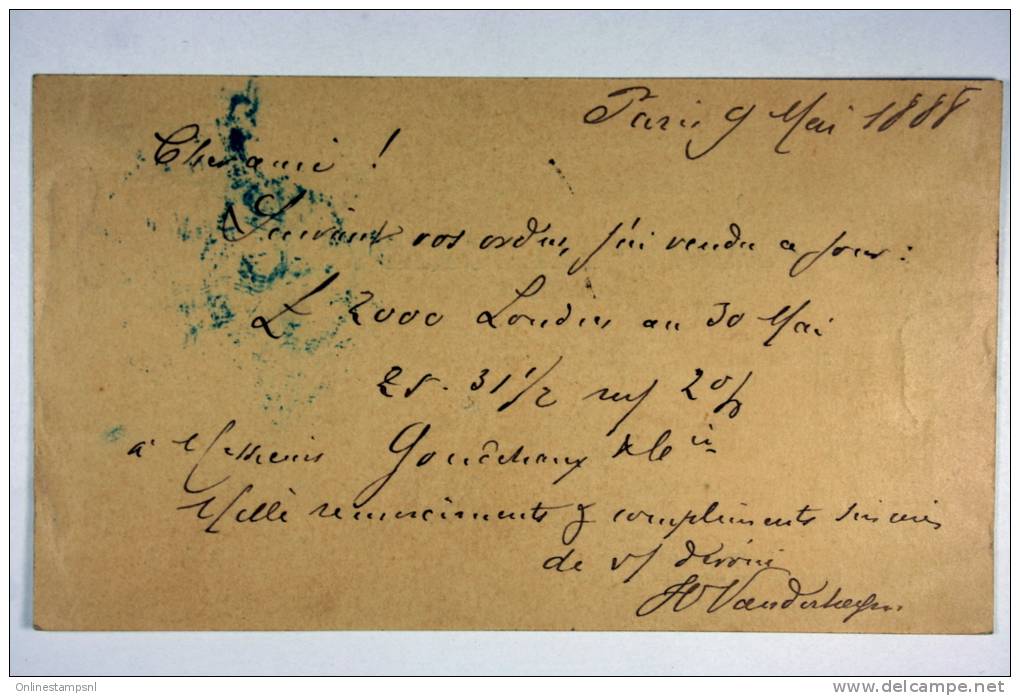 Paris 9 Mai 1888
Cher ami !
Suivant vos ordres, j'ai vendu ce jour :
£ 2000 Londres au 30 Mai
25. 31 1/2 2 %
à Messieurs & Cie
Mille remerciments & compliments sincères
de v/ dévoué
Onlinestampsnl
www.delcampe.net